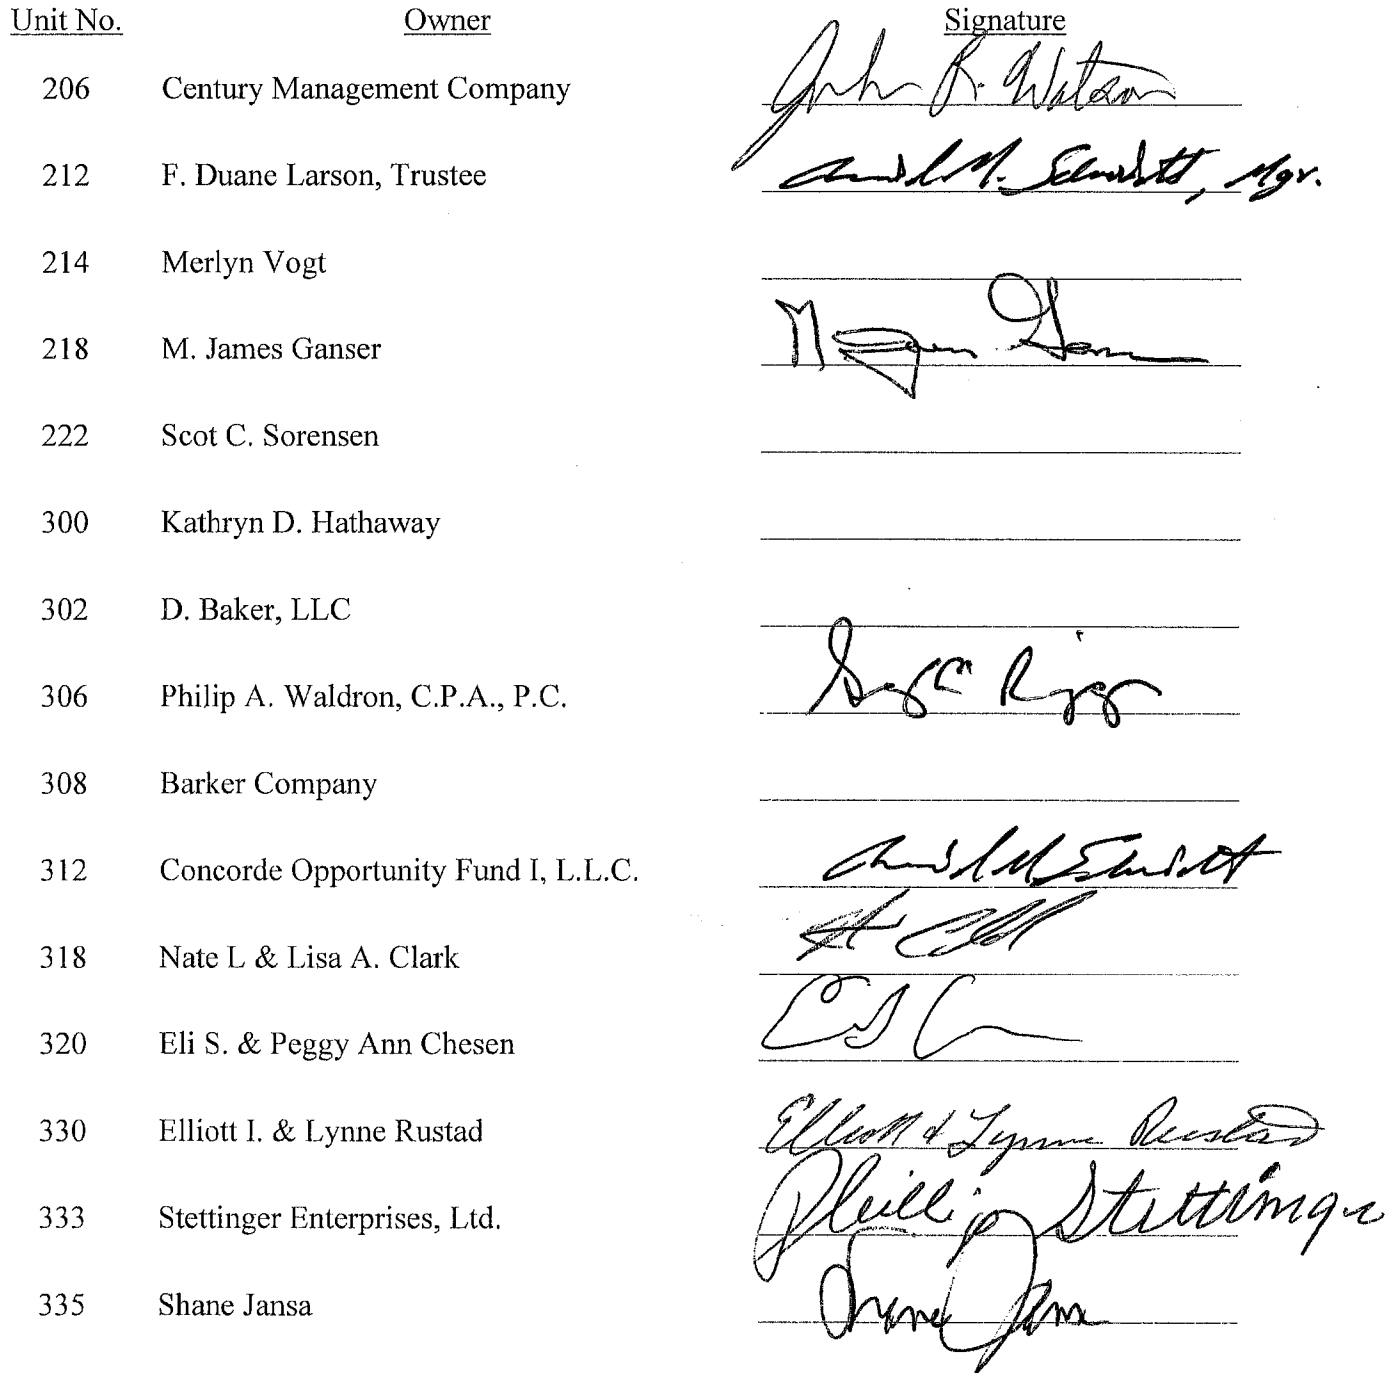 Unit No. Owner Signature
206 Century Management Company John R. Watson
212 F. Duane Larson, Trustee M. Schmidt, Mgr.
214 Merlyn Vogt
218 M. James Ganser
222 Scot C. Sorensen
300 Kathryn D. Hathaway
302 D. Baker, LLC
306 Philip A. Waldron, C.P.A., P.C.
308 Barker Company
312 Concorde Opportunity Fund I, L.L.C. M Schmidt
318 Nate L & Lisa A. Clark
320 Eli S. & Peggy Ann Chesen
330 Elliott I. & Lynne Rustad Elliott & Lynne Rustad
333 Stettinger Enterprises, Ltd. Phillip Stettinger
335 Shane Jansa Shane Jansa